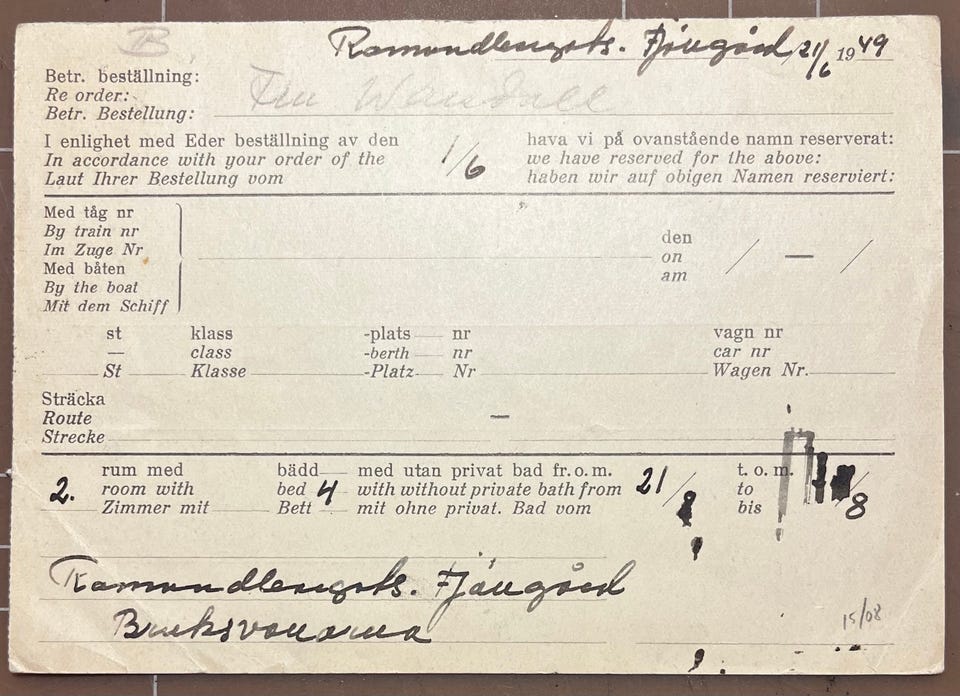 B
Ramundbergets. Fjällgård 21/6 1949
Betr. beställning:
Re order:
Betr. Bestellung:
Wandall
I enlighet med Eder beställning av den
In accordance with your order of the
Laut Ihrer Bestellung vom
1/6
hava vi på ovanstående namn reserverat:
we have reserved for the above:
haben wir auf obigen Namen reserviert:
Med tåg nr
By train nr
Im Zuge Nr
Med båten
By the boat
Mit dem Schiff
den
on
am
/ — /
st klass -plats nr vagn nr
— class -berth nr car nr
St Klasse -Platz Nr Wagen Nr.
Sträcka
Route —
Strecke
rum med bädd med utan privat bad fr.o.m. t.o.m.
2. room with bed 4 with without private bath from 21/8 to /8
Zimmer mit Bett mit ohne privat. Bad vom bis
Ramundbergets. Fjällgård
Bruksvallarna
15/08